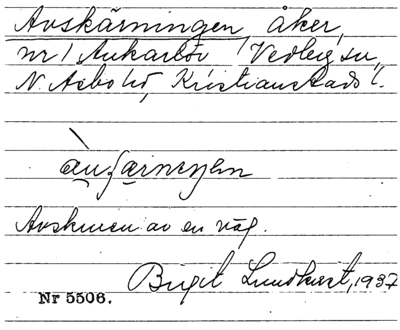 Avskärningen, åker,
nr 1 Ankarlöv Vedby sn,
N. Åsbo hd, Kristianstads l.
Avskuren av en väg.
Birgit Lundkvist, 1937
Nr 5506.